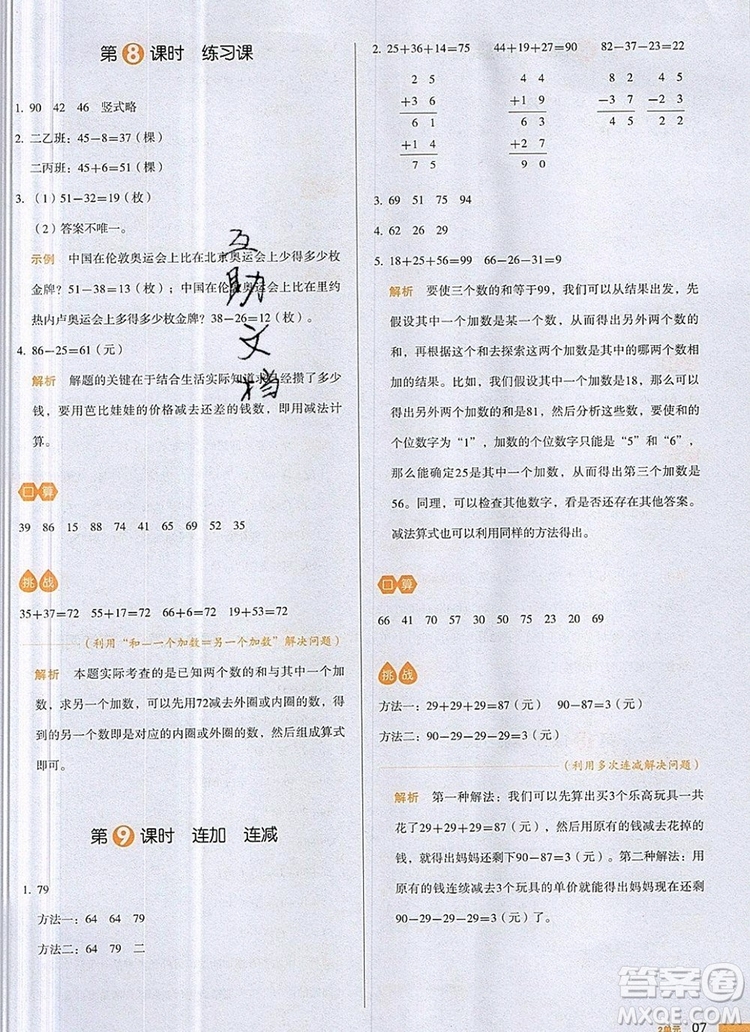 第8课时 练习课
1. 90 42 46 竖式略
2. 二乙班：45-8=37（棵）
二丙班：45+6=51（棵）
3. （1）51-32=19（枚）
（2）答案不唯一。
示例 中国在伦敦奥运会上比在北京奥运会上少得多少枚
金牌？51-38=13（枚）；中国在伦敦奥运会上比在里约
热内卢奥运会上多得多少枚金牌？38-26=12（枚）。
4. 86-25=61（元）
解析 解题的关键在于结合生活实际知道求已经攒了多少
钱，要用芭比娃娃的价格减去还差的钱数，即用减法计
算。
口算
39 86 15 88 74 41 65 69 52 35
挑战
35+37=72 55+17=72 66+6=72 19+53=72
（利用“和-一个加数=另一个加数”解决问题）
解析 本题实际考查的是已知两个数的和与其中一个加
数，求另一个加数，可以先用72减去外圈或内圈的数，得
到的另一个数即是对应的内圈或外圈的数，然后组成算式
即可。
第9课时 连加 连减
1. 79
方法一：64 64 79
方法二：64 79 二
2. 25+36+14=75 44+19+27=90 82-37-23=22
2 5 4 4 8 2
+3 6 +1 9 -3 7
6 1 6 3 4 5
+1 4 +2 7 -2 3
7 5 9 0 2 2
3. 69 51 75 94
4. 62 26 29
5. 18+25+56=99 66-26-31=9
解析 要使三个数的和等于99，我们可以从结果出发，先
假设其中一个加数是某一个数，从而得出另外两个数的
和，再根据和去探索这两个加数可能是图中的哪两个数。
比如，我们可以先假设其中一个加数是18，那么就可以
得出另外两个加数的和是81，然后分析这些数，要使和的
个位数字为“1”，加数的个位数字只能是“5”和“6”，
那么就能确定25是其中一个加数，剩下的一个加数是
56。同理，可以检查其他数字，看看是否还存在其他答案。
减法算式也可以利用同样的方法得出。
口算
66 41 70 57 30 50 75 23 20 69
挑战
方法一：29+29+29=87（元） 90-87=3（元）
方法二：90-29-29-29=3（元）
（利用多次连减解决问题）
解析 第一种解法：我们可以先算出买3个乐高玩具一共
花了29+29+29=87（元），然后用原有的钱减去花掉的
钱，就得出妈妈还剩下90-87=3（元）。第二种解法：用
原有的钱连续减去3个玩具的单价就能得出妈妈还剩下
90-29-29-29=3（元）。
互
助
文
档
2单元 07
答案圈
MXQE.COM